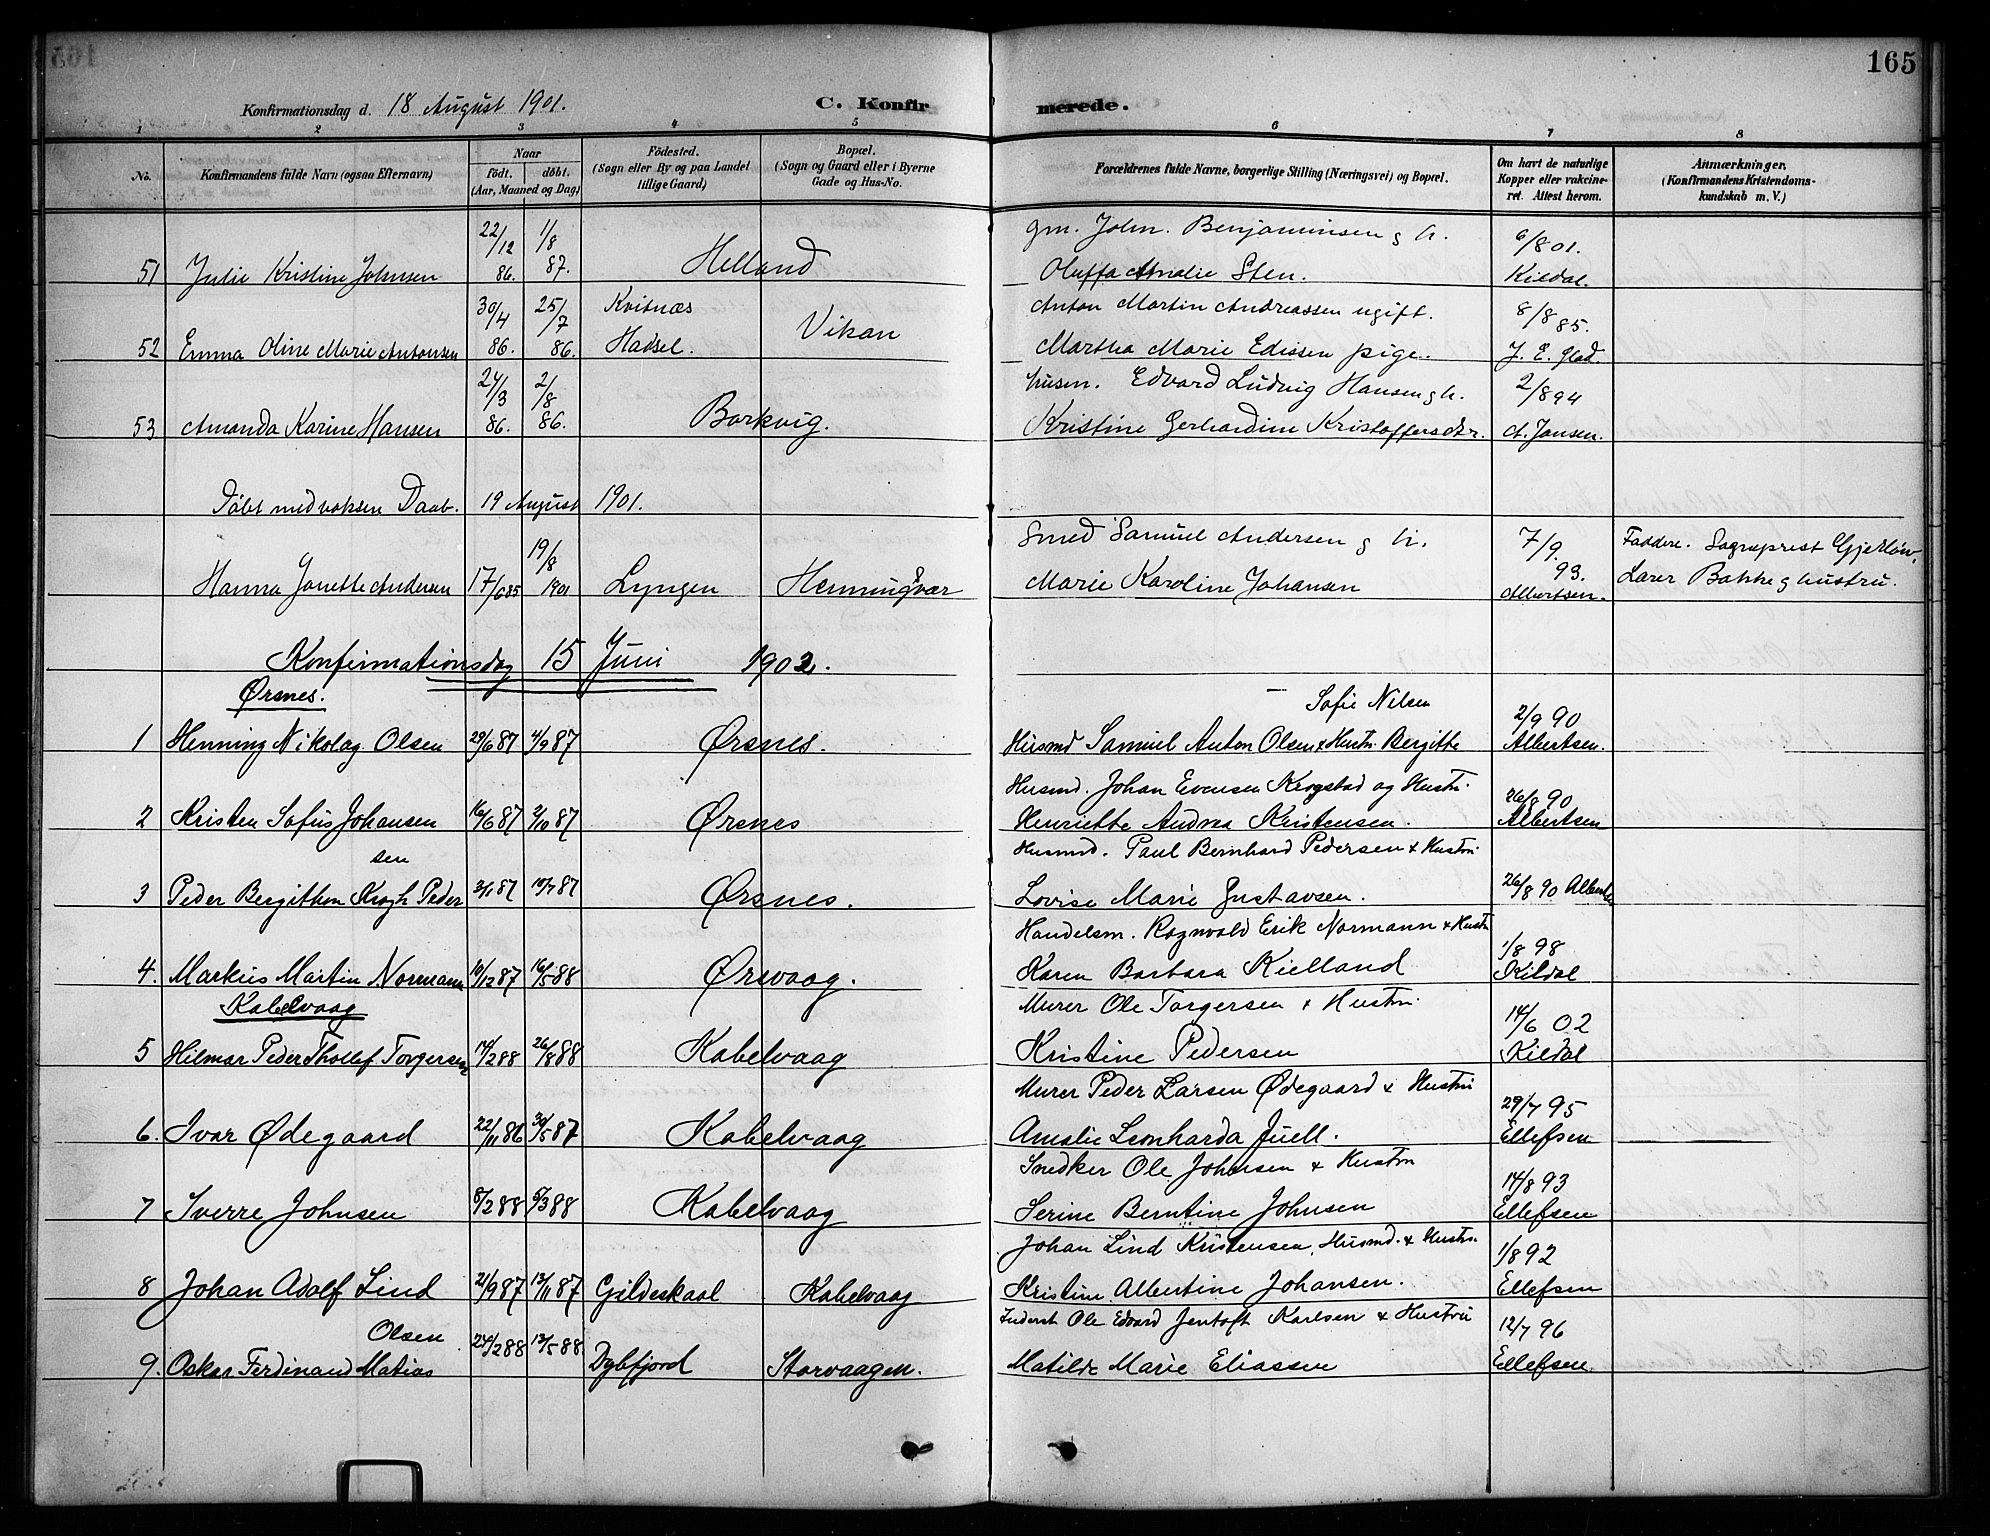 165
Konfirmationsdag d. 18 August 1901. C. Konfirmerede.
1 2 3 4 5 6 7 8
No. Konfirmandens fulde Navn (ogsaa Efternavn) Naar født. døbt. (Aar, Maaned og Dag) Fødested. (Sogn eller By og paa Landet tillige Gaard) Bopæl. (Sogn og Gaard eller i Byerne Gade og Hus-No.) Forældrenes fulde Navne, borgerlige Stilling (Næringsvei) og Bopæl. Om havt de naturlige Kopper eller vakcineret. Attest herom. Anmærkninger, (Konfirmandens Kristendomskundskab m. V.)
gm. John. Benjaminsen g h.
51 Julie Kristine Johnsen 22/12 86. 1/8 87. Helland Oluffa Amalie Sten. 6/8 01. Kildal.
Anton Martin Andreassen ugift.
52 Emma Oline Marie Antonsen 30/4 86. 25/7 86. Kvitnæs Hadsel. Vikan Martha Marie Edissen pige. 8/8 85. J. E. Glad.
husm. Edvard Ludvig Hansen g h.
53 Amanda Karine Hansen 24/3 86. 2/8 86. Barkvig. Kristine Gerhardine Kristoffersdtr. 2/8 94 A. Jansen.
Døbt med voksen Daab. 19 August 1901.
Smed Samuel Andersen g h.
Hanna Janette Andersen 17/6 85 19/8 1901 Lyngen Henningsvær Marie Karoline Johansen 7/9 93. Albertsen. Faddere. Sogneprest Gjerløw, Lærer Bakke g hustru.
Konfirmationsdag 15 Juni 1902.
Ørsnes.
Sofie Nilsen
1 Henning Nikolag Olsen 29/6 87 4/9 87 Ørsnes. Husmd Samuel Anton Olsen & Hustr. Bergitte 2/9 90 Albertsen.
Husmd. Johan Evensen Krogstad og Hustr.
2 Kristen Sofus Johansen 16/6 87 2/10 87 Ørsnes Henriette Andrea Kristensen. 26/8 90 Albertsen
Husmd. Paul Bernhard Pedersen & Hustr.
3 Peder Bergithon Krogh Pedersen 3/1 87 10/7 87 Ørsnes. Lovise Marie Gustavsen. 26/8 90
Handelsm. Ragnvald Erik Normann & Hustr
4. Markus Martin Normann 10/12 87 16/5 88 Ørsvaag. Karen Barbara Kielland 1/8 98 Kildal
Kabelvaag
Murer Ole Torgersen & Hustr.
5 Hilmar Peder Thollef Torgersen 14/2 88 26/8 88 Kabelvaag Kristine Pedersen 14/6 02 Kildal
Murer Peder Larsen Ødegaard & Hustru
6. Ivar Ødegaard 22/11 86 30/5 87 Kabelvaag Amalie Leonharda Juell. 29/7 95 Ellefsen
Snedker Ole Johnsen & Hustru
7 Sverre Johnsen 8/2 88 5/3 88 Kabelvaag Serine Berntine Johnsen 14/8 93 Ellefsen
Johan Lind Kristensen, Husmd. & Hustr.
8 Johan Adolf Lind 21/9 87 13/11 87 Gildeskaal Kabelvaag Kristine Albertine Johansen. 1/8 92 Ellefsen
Inderst Ole Edvard Jentoft Karlsen & Hustru
9. Oskar Ferdinand Matias Olsen 24/2 88 13/5 88 Dybfjord Storvaagen. Matilde Marie Eliassen 12/7 96 Ellefsen.